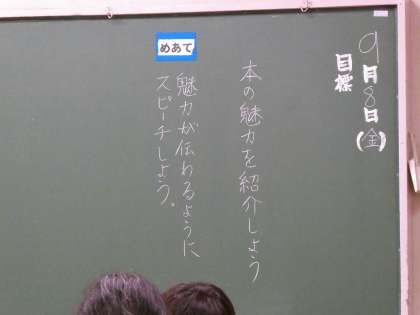 9月8日(金)
目標
本の魅力を紹介しよう
めあて
魅力が伝わるように
スピーチしよう。